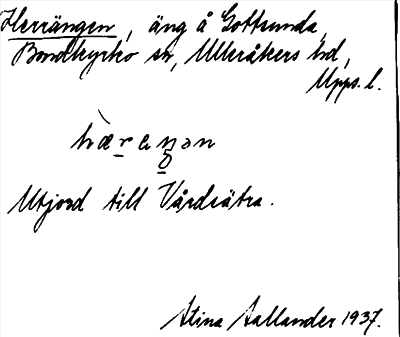 Herrängen, äng å Gottsunda,
Bondkyrko sn, Ulleråkers hd,
Upps. l.
Utjord till Vårdsätra.
Stina Aallander 1937.